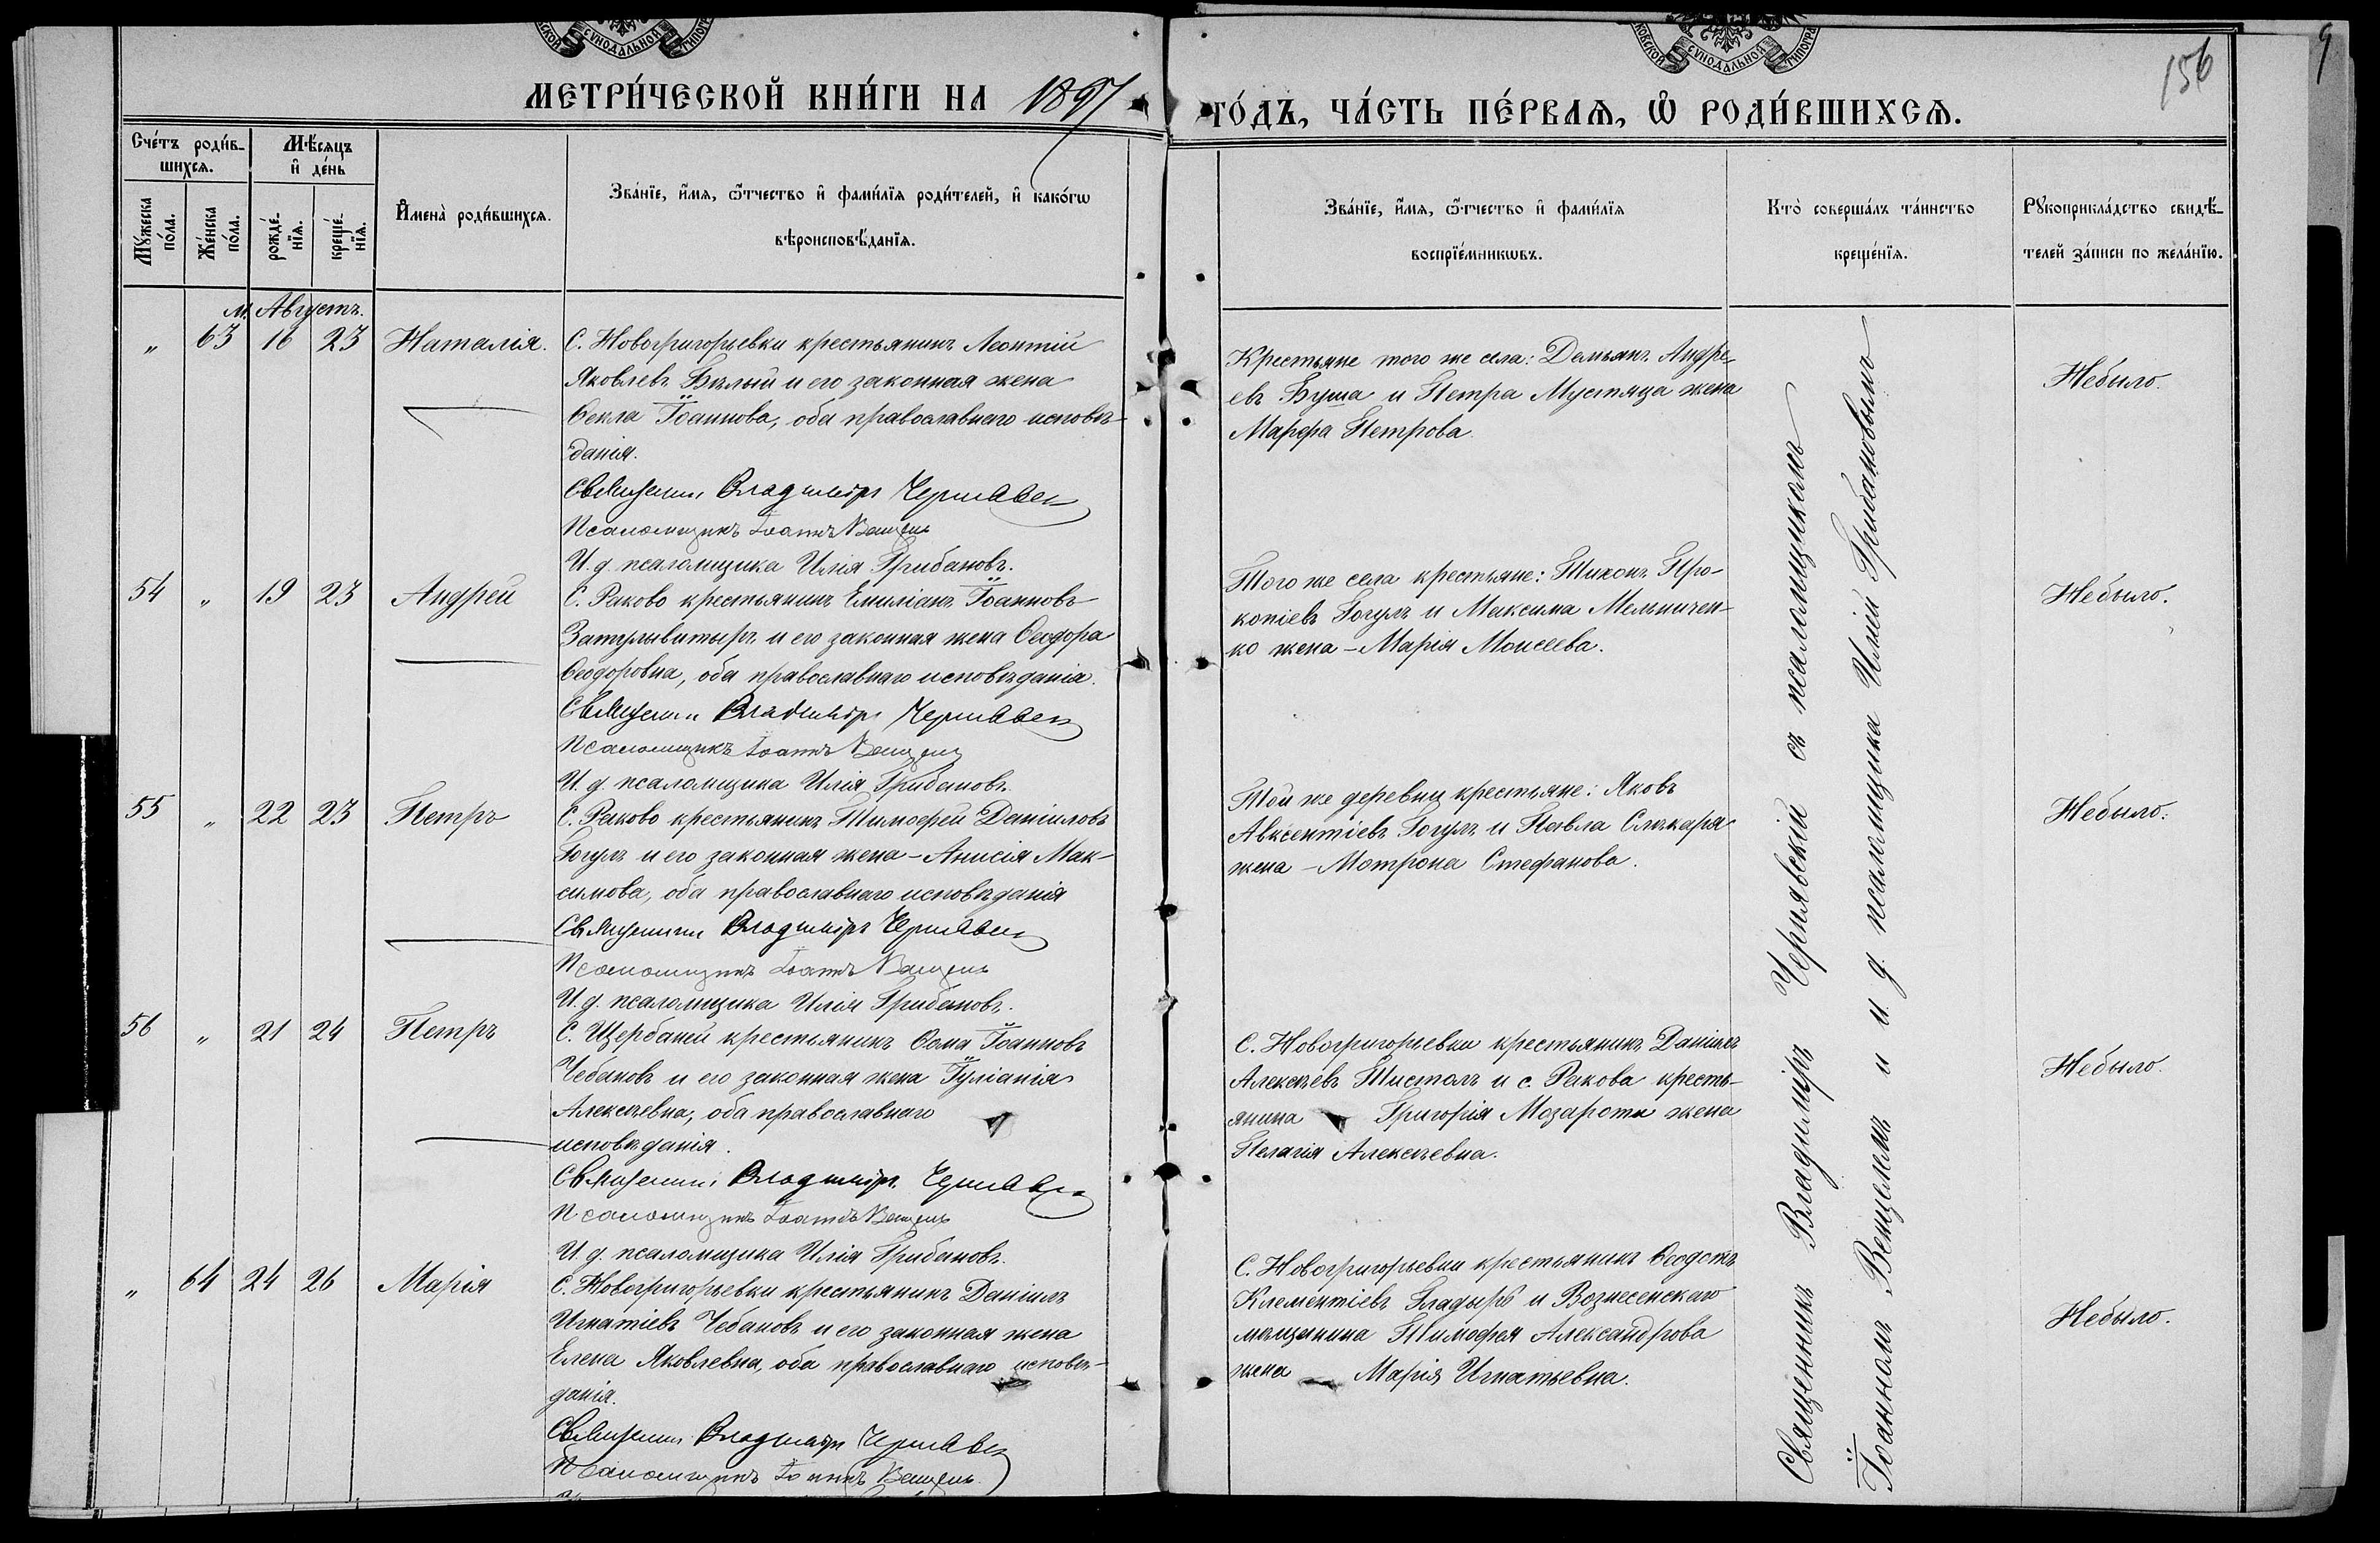 МЕТРИ́ЧЕСКОЙ КНИ́ГИ НА 1897 ГО́ДЪ, ЧА́СТЬ ПЕ́РВАѦ, Ѡ҆ РОДИ́ВШИХСѦ.
156
9
Сче́тъ роди́в-
шихсѧ.
Мѣ́сѧцъ
и҆ де́нь
Мꙋ́жеска
по́ла.
Же́нска
по́ла.
рожде́-
нїѧ.
креще́-
нїѧ.
И҆мена̀ роди́вшихсѧ.
Зва́нїе, и҆́мѧ, ѻ҆́тчество и҆ фами́лїѧ роди́телей, и҆ како́гѡ
вѣроисповѣ́данїѧ.
Зва́нїе, и҆́мѧ, ѻ҆́тчество и҆ фами́лїѧ
воспрїе́мникѡвъ.
Кто̀ соверша́лъ та́инство
креще́нїѧ.
Рꙋкоприкла́дство свидѣ́-
телей за́писи по жела́нїю.
м. Августъ.
„ 63 16 23 Наталія.
С. Новогригорьевки крестьянинъ Леонтій
Яковлевъ Бѣлый и его законная жена
Ѳекла Іоаннова, оба православнаго исповѣ-
данія.
Священникъ Владиміръ Чернявскій
Псаломщикъ Іоаннъ Венцель
И. д. псаломщика Илія Грибановъ.
Крестьяне того же села: Демьянъ Андре-
евъ Буша и Петра Мустяца жена
Марѳа Петрова.
Небыло.
54 „ 19 23 Андрей
С. Раково крестьянинъ Емиліанъ Іоанновъ
Затулывитыръ и его законная жена Ѳеодора
Ѳеодоровна, оба православнаго исповѣданія.
Священникъ Владиміръ Чернявскій
Псаломщикъ Іоаннъ Венцель
И. д. псаломщика Илія Грибановъ.
Того же села крестьяне: Тихонъ Про-
копіевъ Гогулъ и Максима Мельничен-
ко жена - Марія Моисеева.
Небыло.
55 „ 22 23 Петръ
С. Раково крестьянинъ Тимоѳей Даніиловъ
Гогулъ и его законная жена - Анисія Мак-
симова, оба православнаго исповѣданія
Священникъ Владиміръ Чернявскій
Псаломщикъ Іоаннъ Венцель
И. д. псаломщика Илія Грибановъ.
Той же деревни крестьяне: Яковъ
Авксентіевъ Гогулъ и Павла Слюкаря
жена - Мотрона Стефанова.
Небыло.
56 „ 21 24 Петръ
С. Щербаней крестьянинъ Ѳома Іоанновъ
Чебановъ и его законная жена Іуліанія
Алексѣевна, оба православнаго
исповѣданія.
Священникъ Владиміръ Чернявскій
Псаломщикъ Іоаннъ Венцель
И. д. псаломщика Илія Грибановъ.
С. Новогригорьевки крестьянинъ Даніилъ
Алексѣевъ Тистолъ и с. Ракова кресть-
янина Григорія Мозарота жена
Пелагія Алексѣевна.
Небыло.
„ 64 24 26 Марія
С. Новогригорьевки крестьянинъ Даніилъ
Игнатіевъ Чебановъ и его законная жена
Елена Яковлевна, оба православнаго исповѣ-
данія.
Священникъ Владиміръ Чернявскій
Псаломщикъ Іоаннъ Венцель.
С. Новогригорьевки крестьянинъ Ѳеодотъ
Клементіевъ Гладыръ и Вознесенскаго
мѣщанина Тимофея Александрова
жена Марія Игнатьевна.
Небыло.
Священникъ Владиміръ Чернявскій съ псаломщикомъ
Іоанномъ Венцелемъ и и. д. псаломщика Иліей Грибановымъ